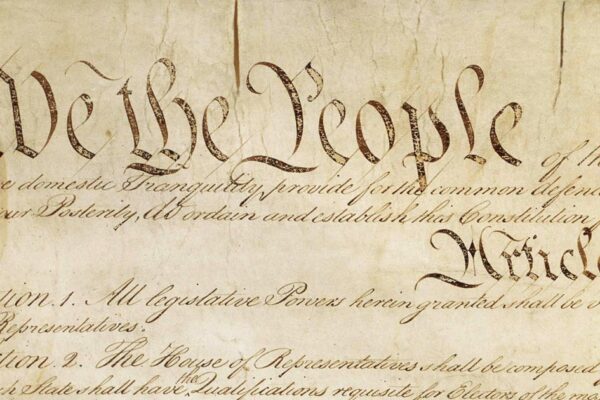 We the People of th
e domestic Tranquility, provide for the common defence
our Posterity, do ordain and establish this Constitution
Article
tion. 1. All legislative Powers herein granted shall be v
Representatives.
tion. 2. The House of Representatives shall be composed
ch State shall have the Qualifications requisite for Electors of the mo